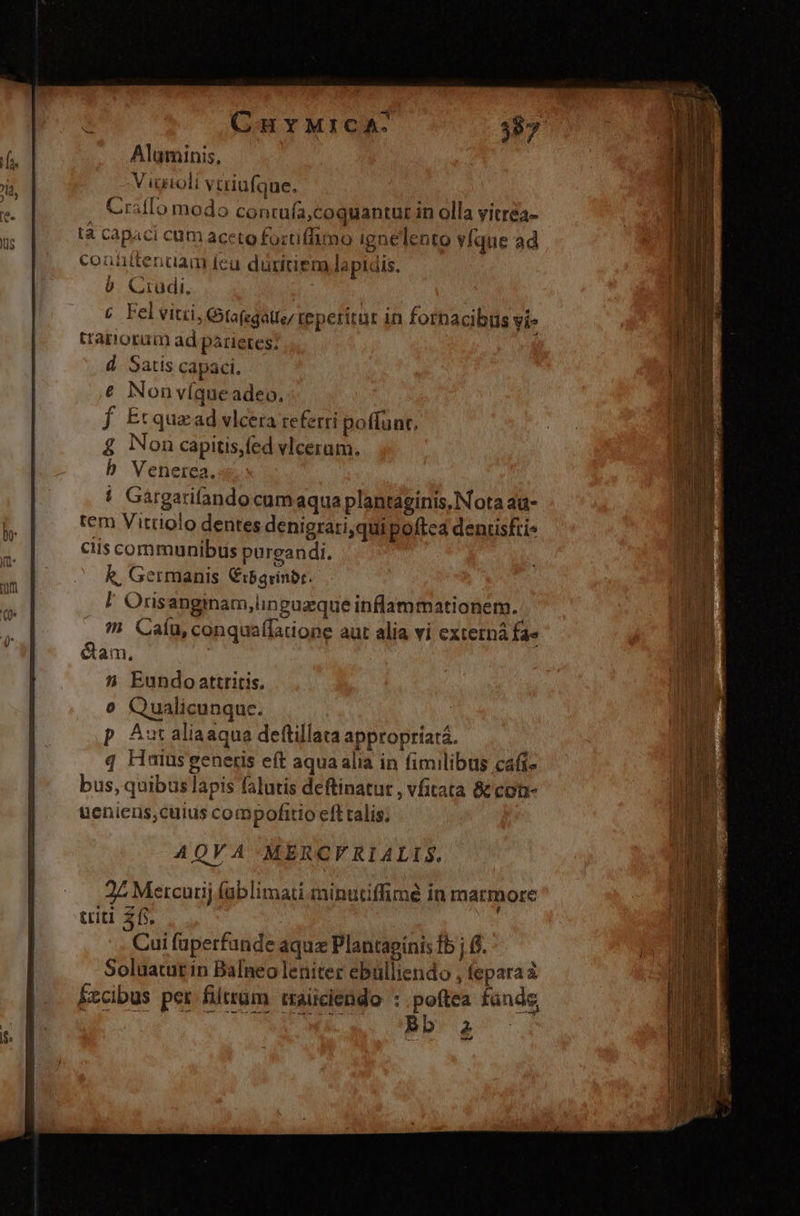 CHYMICA. 387
Aluminis,
Vitrioli vtriuſque.
Craſſo modo contuſa, coquantur in olla vitrea-
ta capaci cum aceto fortiſſimo igne lento vſque ad
conſiſtentiam ſeu duritiem lapidis.
b Crudi.
c Fel vitri, Glaſegalle/ reperitur in fornacibus vi-
trariorum ad parietes.
d Satis capaci.
e Non vſque adeo.
f Et quæ ad vlcera referri poſſunt.
g Non capitis, ſed vlcerum.
h Venerea.
i Gargariſando cum aqua plantaginis. Nota au-
tem Vitriolo dentes denigrari, qui poſtea dentifri-
ciis communibus purgandi.
k Germanis Erbgrindt.
l Oris anginam, linguæque inflammationem.
m Caſu, conquaſſatione aut alia vi externâ fa-
ctam.
n Eundo attritis.
o Qualicunque.
p Aut alia aqua deſtillata appropriatâ.
q Huius generis eſt aqua alia in ſimilibus caſi-
bus, quibus lapis ſalutis deſtinatur, vſitata & con-
ueniens, cuius compoſitio eſt talis.
AQVA MERCVRIALIS.
♃ Mercurij ſublimati minutiſſimè in marmore
triti ℥ß.
Cui ſuperfunde aquæ Plantaginis ℔ j ß.
Soluatur in Balneo leniter ebulliendo, ſepara à
fæcibus per filtrum traiiciendo : poſtea funde
Bb 2